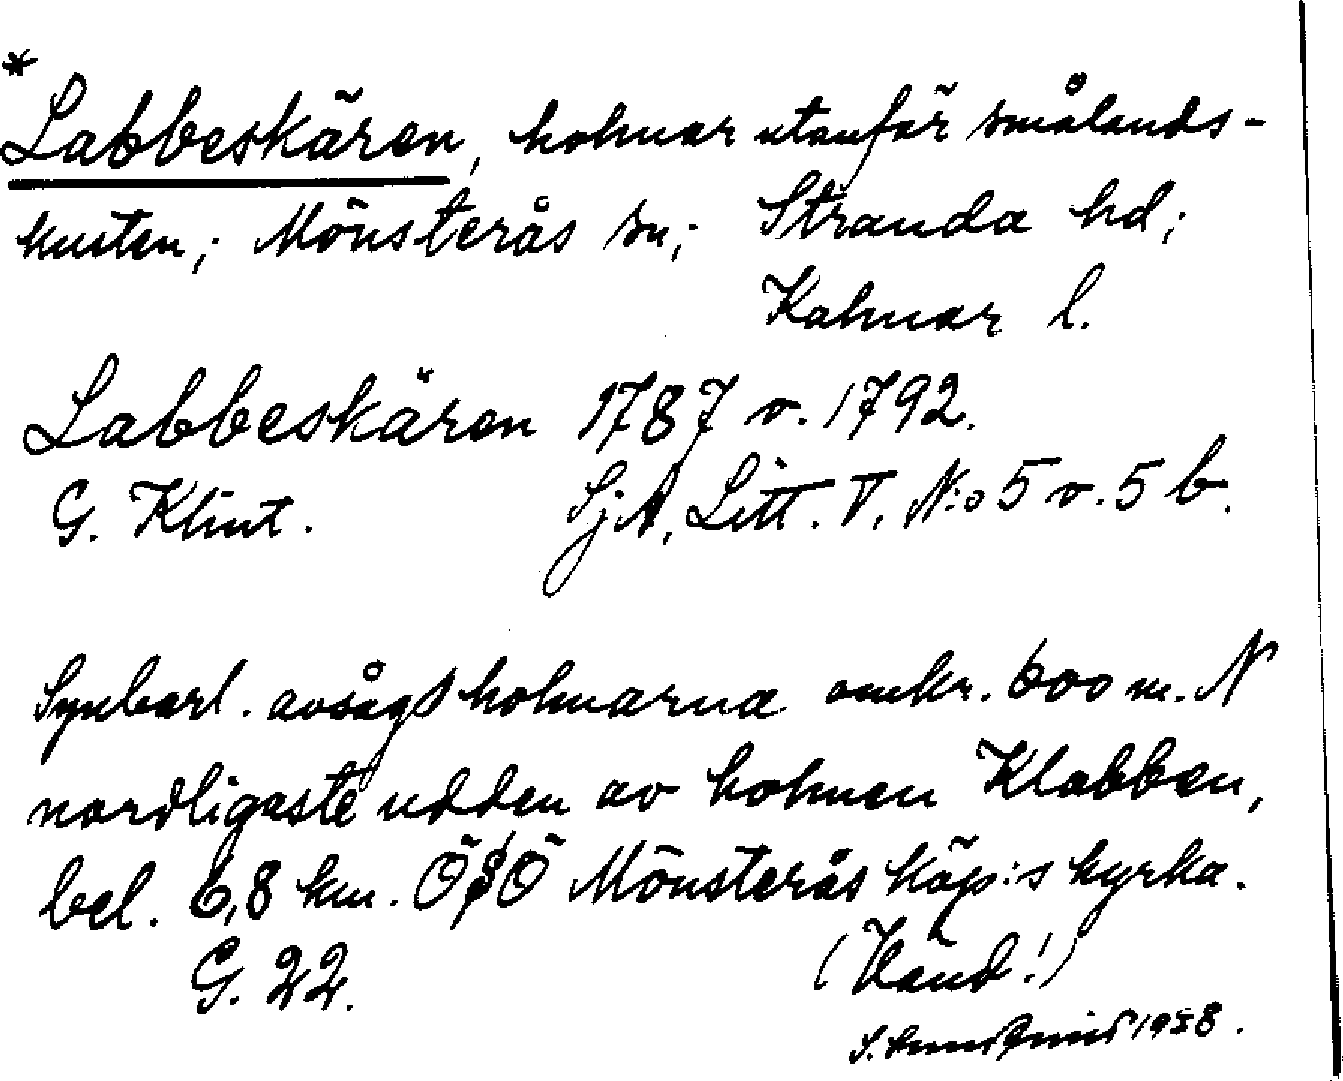 *
Labbeskären, holmar utanför smålands-
kusten; Mönsterås sn; Stranda hd;
Kalmar l.
Labbeskären 1787 o. 1792.
G. Klint. SjA, Litt. V, N:o 5 o. 5 b.
Synbarl. avsågs holmarna omkr. 600 m. N
nordligaste udden av holmen Klabben,
bel. 6,8 km. ÖSÖ Mönsterås köp:s kyrka.
G. 22. (Känd!)
S. 1938.